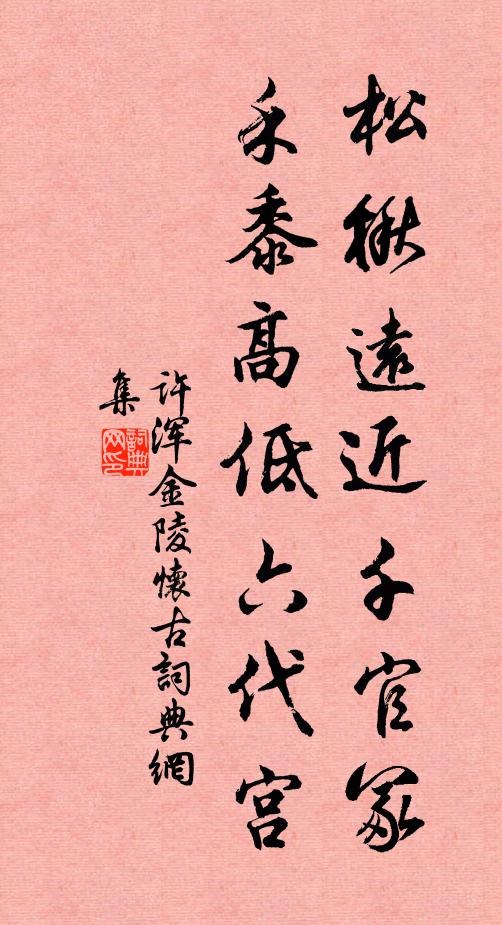 松楸遠近千官冢
禾黍高低六代宫
许浑金陵懷古詞典網
集
詞典网印